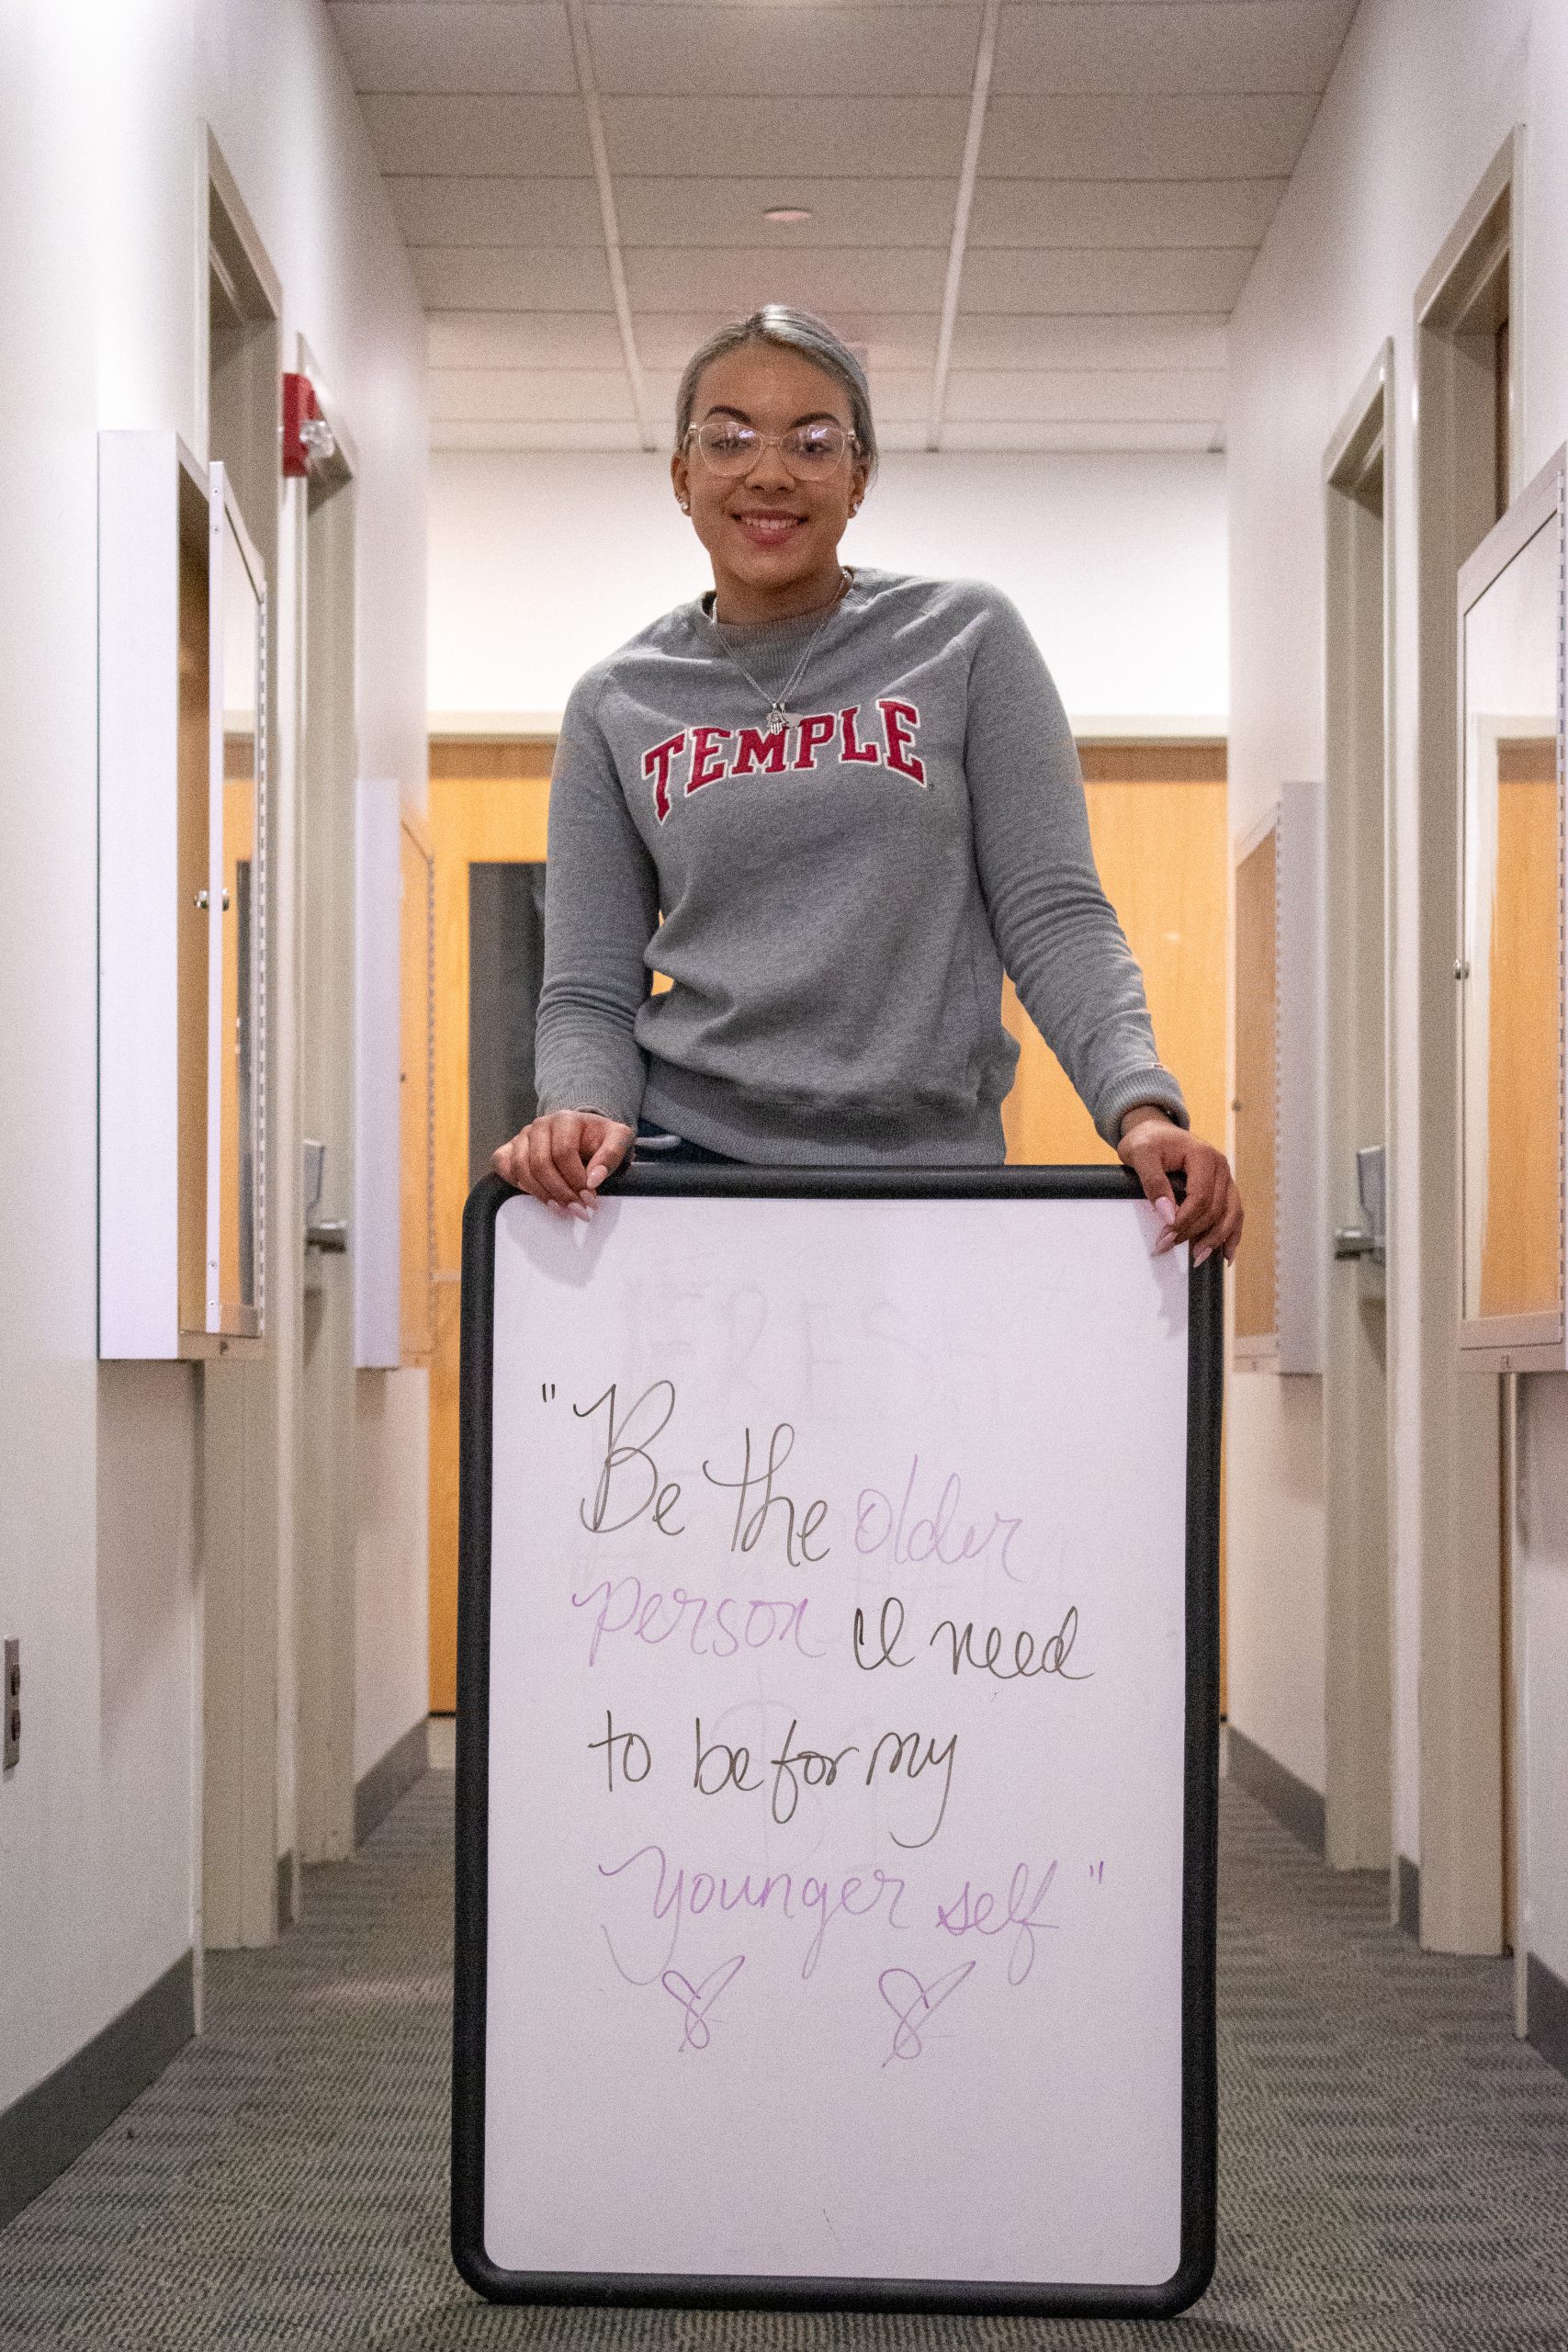 TEMPLE
"Be the older
person I need
to be for my
younger self"